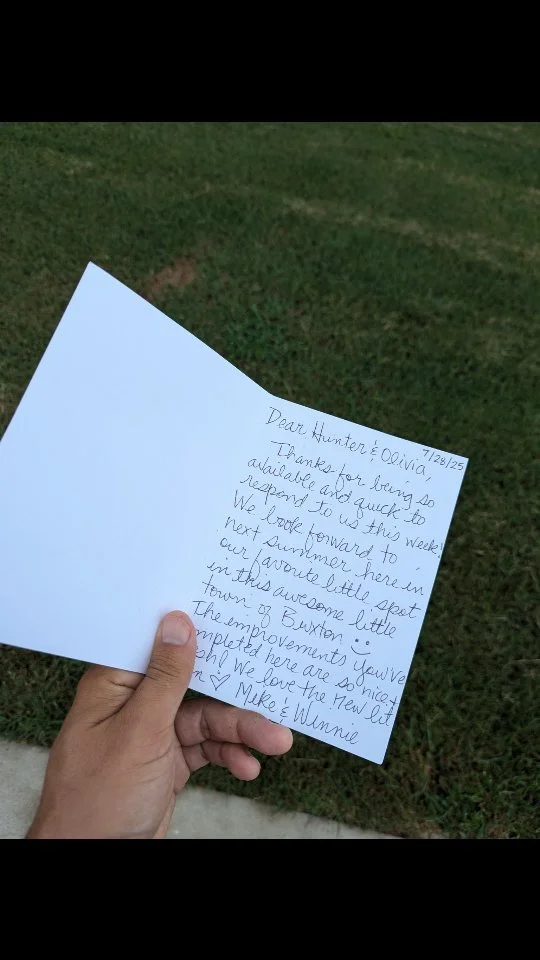 7/28/25
Dear Hunter & Olivia,
Thanks for being so
available and quick to
respond to us this week!
We look forward to
next summer here in
our favorite little spot
in this awesome little
town of Buxton :)
The improvements you've
completed here are so nice +
We love the new
♡ Mike & Winnie